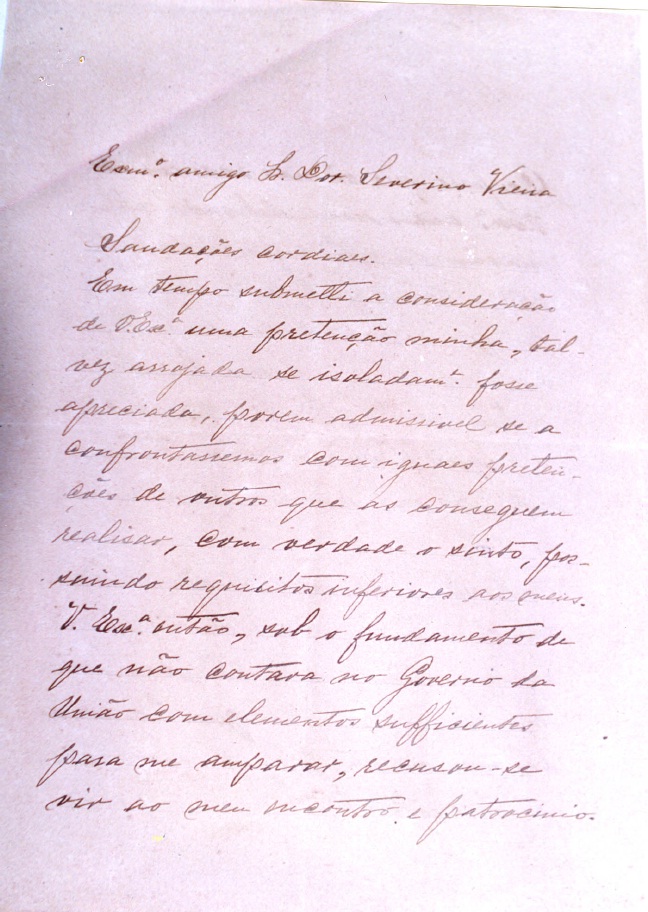 Exmº. amigo Sr. Dor. Severino Vieira
Saudações cordiaes.
Em tempo submetti a consideração
de V. Exª. uma pretenção minha, tal-
vez arrojada se isoladamᵗ. fosse
apreciada, porem admissivel se a
confrontassemos com iguaes preten-
ções de outros que as conseguem
realisar, com verdade o sinto, pos-
suindo requisitos inferiores aos meus.
V. Exª. então, sob o fundamento de
que não contara no Governo da
União com elementos sufficientes
para me amparar, recusou-se
vir ao meu encontro e patrocinio.